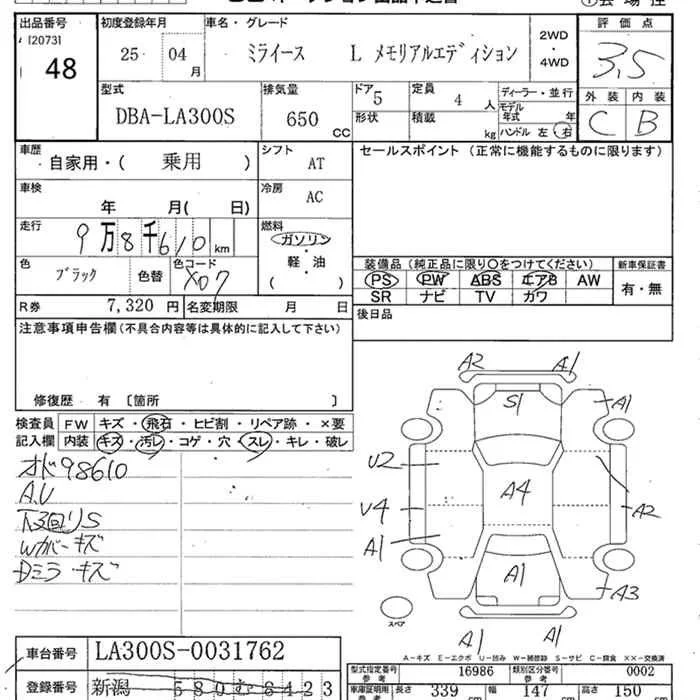 出品番号 初度登録年月 車名・グレード 評価点
120731
48 25 04月 ミライース L メモリアルエディション 2WD・4WD 3,5
型式 排気量 ドア 定員 ディーラー・並行 外装 内装
DBA-LA300S 650 CC 5 4 人 モデル年式 年 C B
形状 積載 kg ハンドル 左・右
車歴 シフト セールスポイント (正常に機能するものに限ります)
自家用・( 乗用 ) AT
車検 冷房
年 月( 日) AC
走行 燃料
9万8千610 km ガソリン・軽・油
( )
色 ブラック 色替 色コード X07
装備品 (純正品に限り〇をつけてください) 新車保証書
PS PW ABS エアB AW 有・無
SR ナビ TV カワ
R券 7,320 円 名変期限 月 日
後日品
注意事項申告欄(不具合内容等は具体的に記入して下さい)
修復歴 有 〔箇所 〕
検査員 FW キズ・飛石・ヒビ割・リペア跡・×要
記入欄 内装 キズ・汚レ・コゲ・穴・スレ・キレ・破レ
オド98610
A.U
下回りS
Wカバーキズ
Dミラ キズ
A2 A1
S1 A1
U2
A4
U4 A2
A1
A1 A3
スペア
A1 A1
A-キズ E-エクボ U-凹み W-補修跡 S-サビ C-腐食 XX-交換済
車台番号 LA300S-0031762
型式指定番号 16986 類別区分番号 0002
参考 参考
登録番号 新潟 580 む 8423
車庫証明用 長さ 339 幅 147 高さ 150
参考 cm cm cm